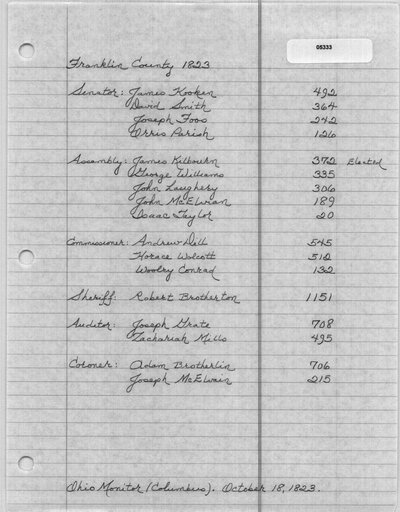 05333
Franklin County 1823
Senator: James Kooken 492
David Smith 364
Joseph Foos 242
Orris Parish 126
Assembly: James Kilbourn 372 Elected
George Williams 335
John Laughery 306
John McElvain 189
Isaac Taylor 20
Commissioner: Andrew Dell 545
Horace Wolcott 512
Woolry Conrad 132
Sheriff: Robert Brotherton 1151
Auditor: Joseph Grate 708
Zachariah Mills 495
Coroner: Adam Brotherlin 706
Joseph McElvain 215
Ohio Monitor (Columbus). October 18, 1823.